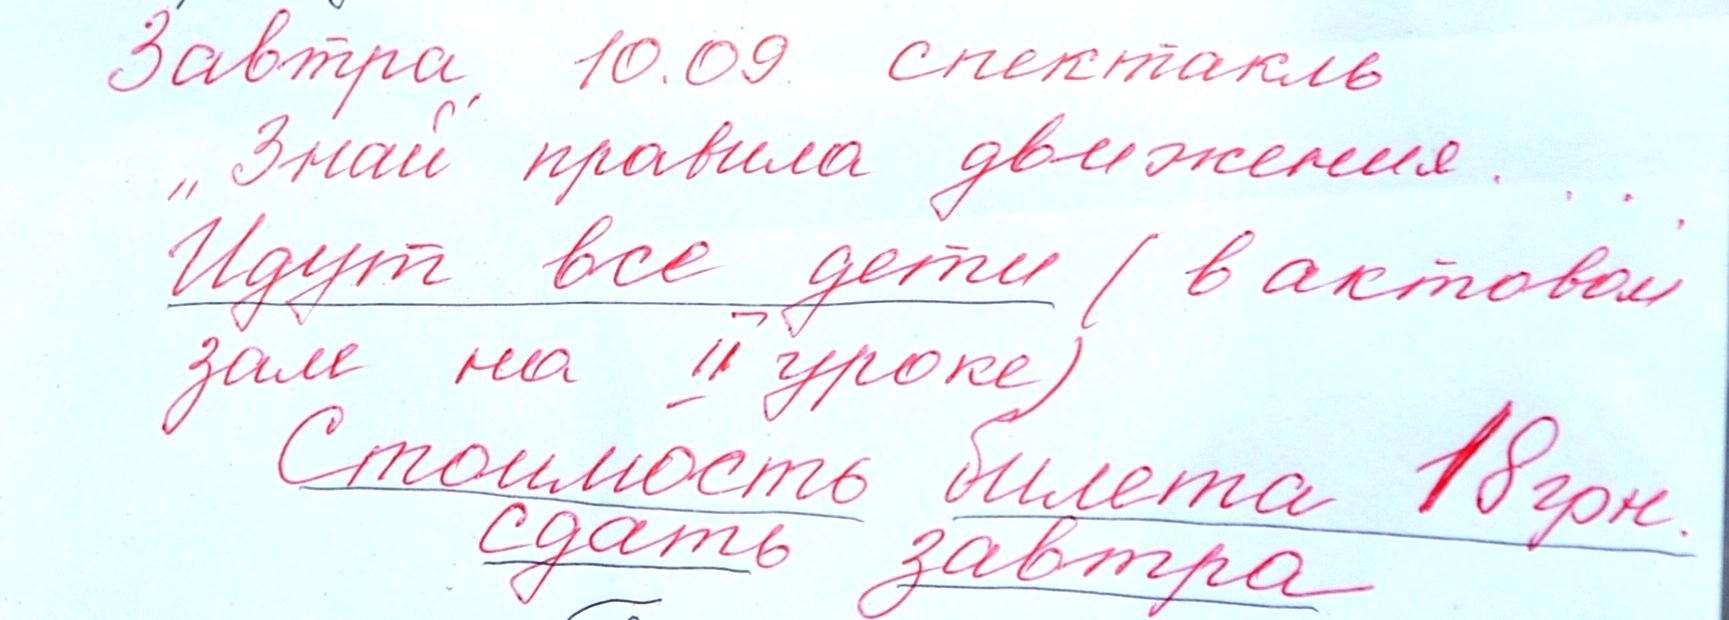 Завтра, 10.09 спектакль
„Знай правила движения....
Идут все дети (в актовом
зале на II уроке)
Стоимость билета 18 грн.
сдать завтра